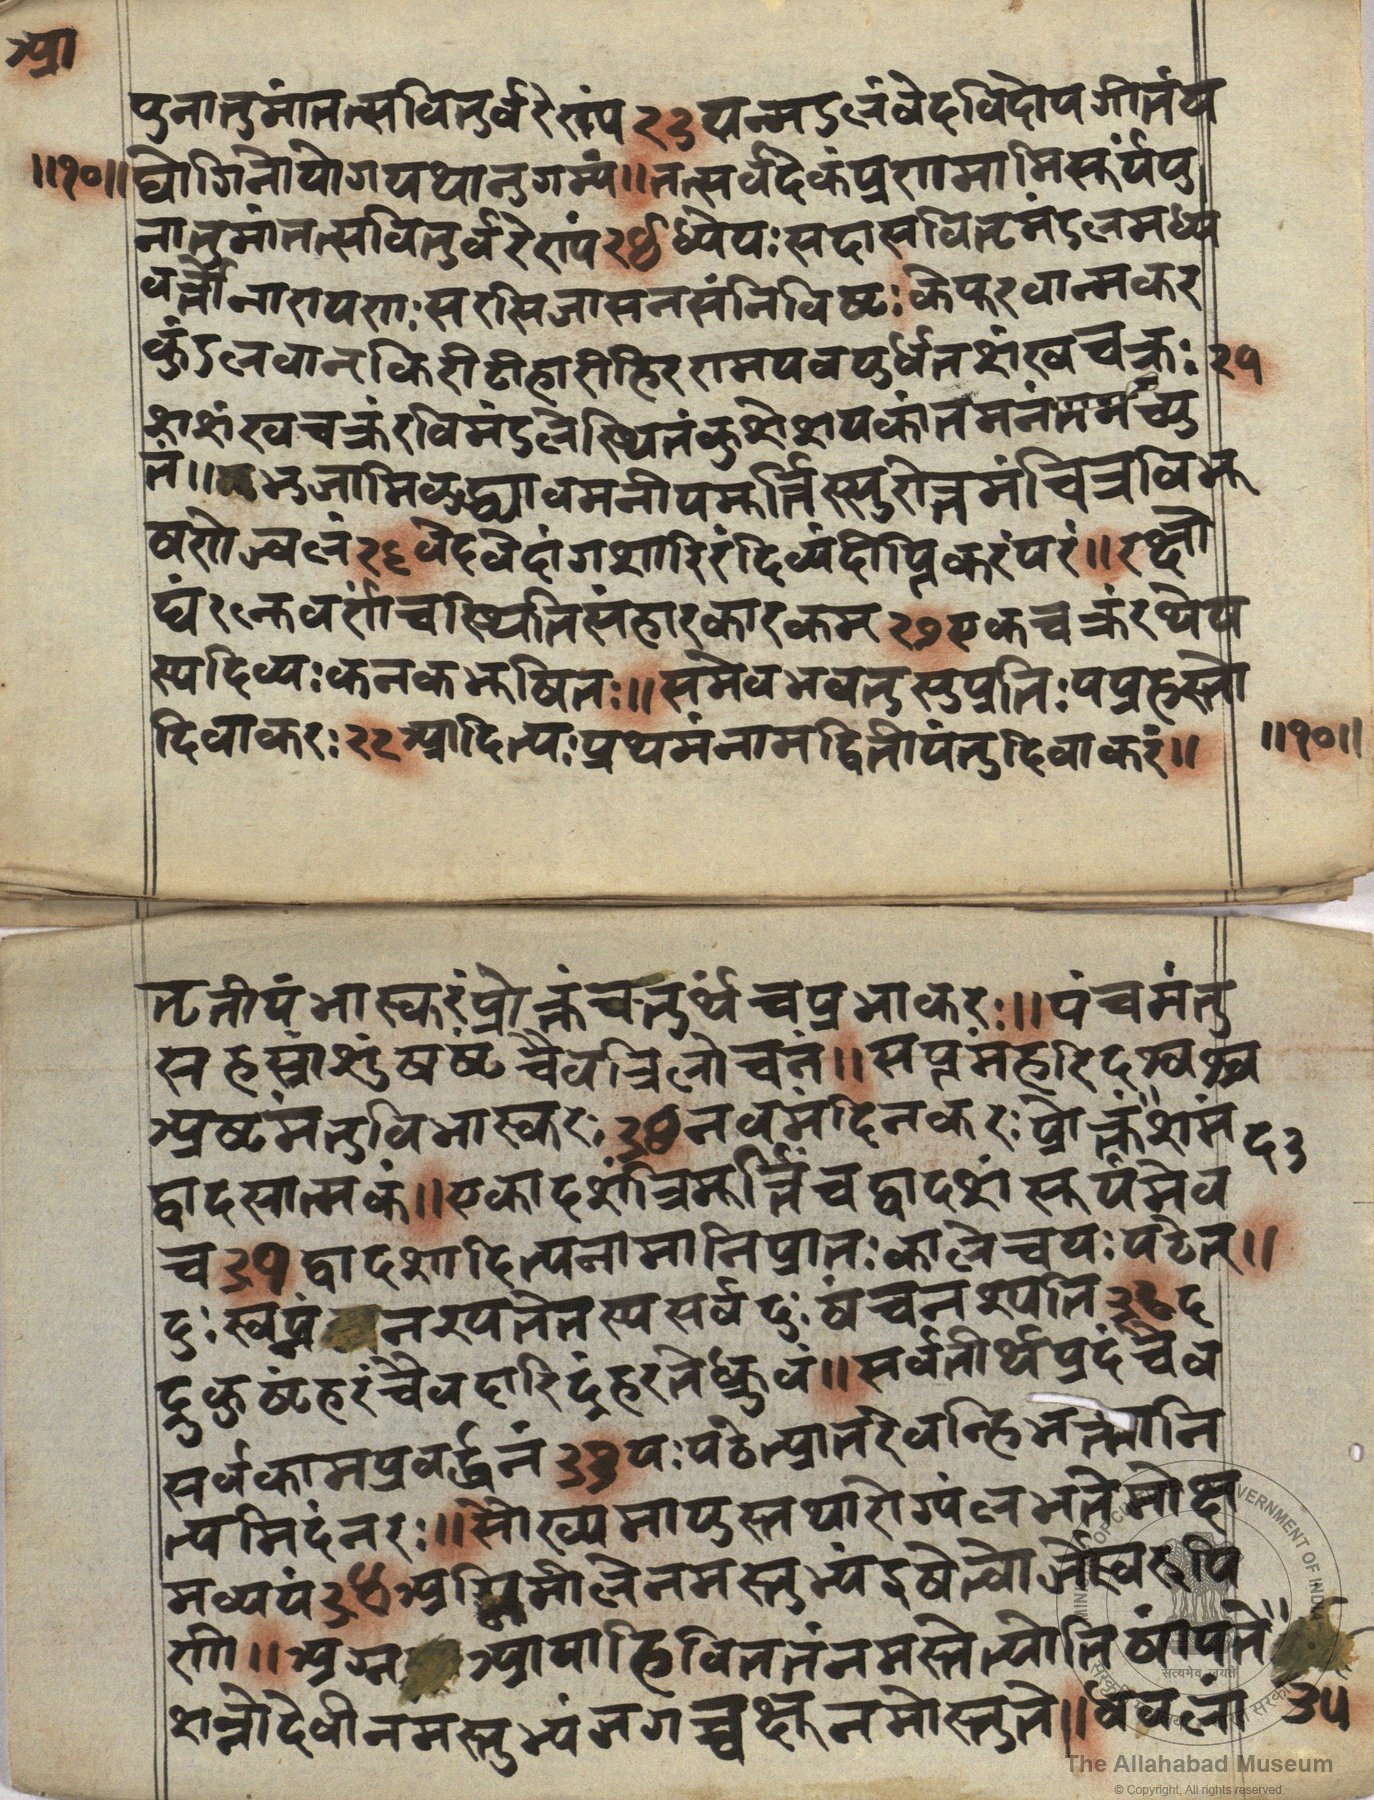 आ
पुनातुमांतत्सवितुर्वरेण्यं २३ यन्मंडलंवेदविदोपगीतंय
॥१०॥ द्योगिनोयोगपथानुगम्यं॥तत्सर्ववेदंप्रणमामिसूर्यंपु
नातुमांतत्सवितुर्वरेण्यं २४ ध्येयःसदासवितृमंडलमध्य
वर्त्तीनारायणःसरसिजासनसंनिविष्टःकेयूरवान्मकर
कुंडलवानकिरीटीहारीहिरण्मयवपुर्धृतशंखचक्रः २५
शशंखचक्रंरविमंडलेस्थितंकुशेशयकांतमनंतमच्यु
तं॥भजामिबुद्ध्यातपनीयमूर्त्तिंसुरोत्तमंचित्रविभू
षणोज्वलं २६ वेदवेदांगशारिरंदिव्यंदीप्तिकरंपरं॥रक्षो
घ्नंरक्तवर्णंचस्थितिसंहारकारकम २७ एकचक्रंरथेय
स्यदिव्यःकनकभूषितः॥समेवभवतुसुप्रतिःपप्रहस्तो
दिवाकरः २८ आदित्यःप्रथमंनामद्वितीयंतुदिवाकरं॥ ॥१०॥
तृतीयंभास्करंप्रोक्तंचतुर्थंचप्रभाकरः॥पंचमंतु
सहस्रांशुंषष्टंचैवत्रिलोचनं॥सप्तमंहरिदश्वश्व
अष्टमंतुविभास्करः ३० नवमंदिनकरःप्रोक्तं"शमं द३
द्वादसात्मकं॥एकादशंत्रिमूर्त्तिंचद्वादशंसूर्यमेव
च ३१ द्वादशादित्यनामानिप्रातःकालेचयःपठेत्॥
दुःस्वप्नंनश्यतेतस्यसर्वदुःषंचनश्यति ३२ द
द्रुकुष्टंहरंचैवदारिद्रंहरतेध्रुवं॥सर्वतीर्थप्रदंचैव
सर्वकामप्रवर्द्धनं ३३ यःपठेत्प्रातरेवन्हिभक्तानि
त्यमिदंनरः॥सौख्यमायुस्तथारोग्यंलभतेमोक्ष
मव्ययं ३४ अग्निमीलेनमस्तुभ्यंइषेत्वोर्जेस्वरूपि
णे॥अग्नआयाहिविततंनमस्तेत्योतिषांपते"
शन्नोदेवीनमस्तुभ्यंजगच्चक्षूनमोस्तुते॥धवलां ३५
MINISTRY OF CULTURE GOVERNMENT OF INDIA
सत्यमेव जयते
The Allahabad Museum
© Copyright, All rights reserved.